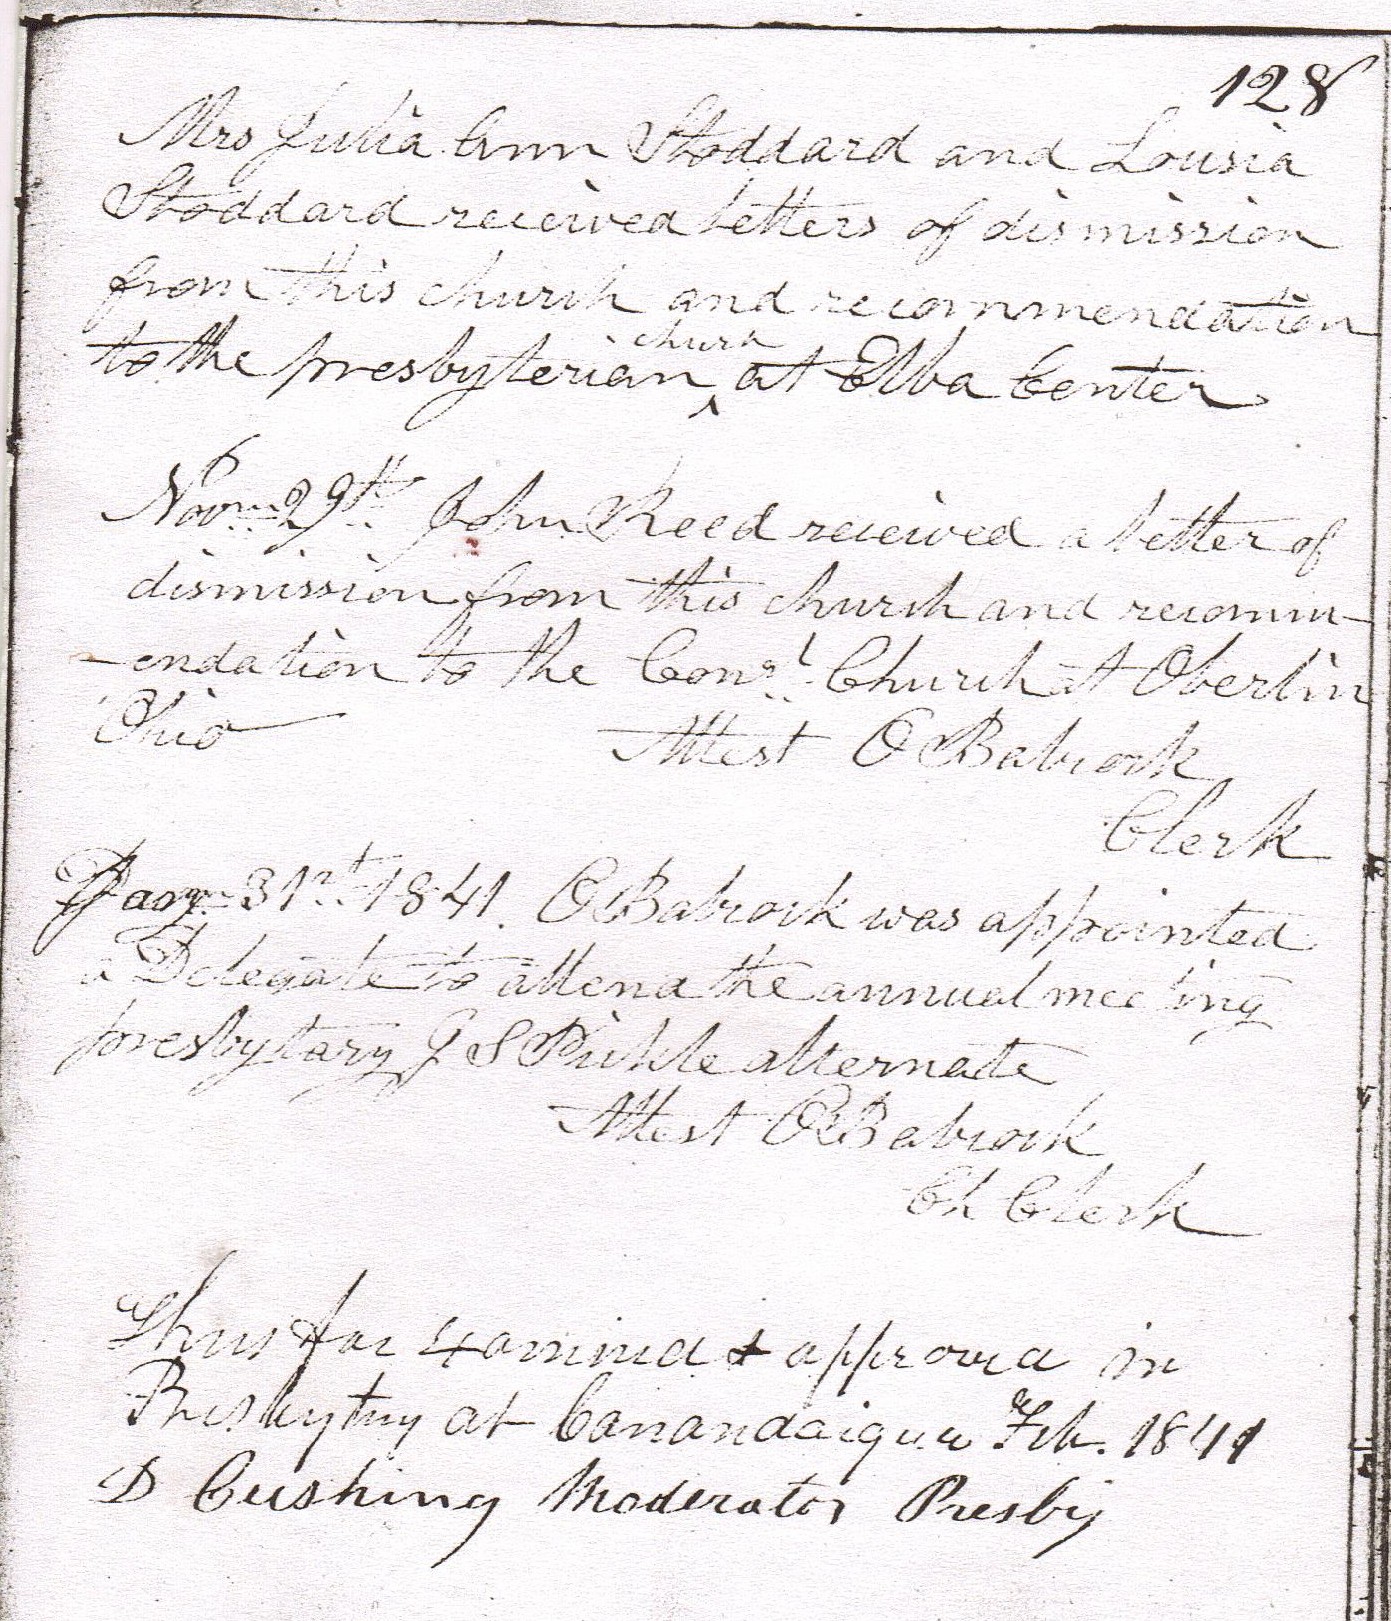 128
Mrs Julia Ann Stoddard and Lousia
Stoddard received letters of dismission
from this church and recommendation
to the presbyterian ^church at Elba Center
Novm 29th John Reed received a letter of
dismission from this church and recomm-
-endation to the Congl Church at Oberlin
Ohio Attest O Babcock
Clerk
Jany 31st 1841. O Babcock was appointed
a Delegate to attend the annual meeting
presbytary J S alternate
Attest O Babcock
Ch Clerk
Thus far examined & approved in
Presbytry at Canandaigua Feb. 1841
D Cushing Moderator Presby